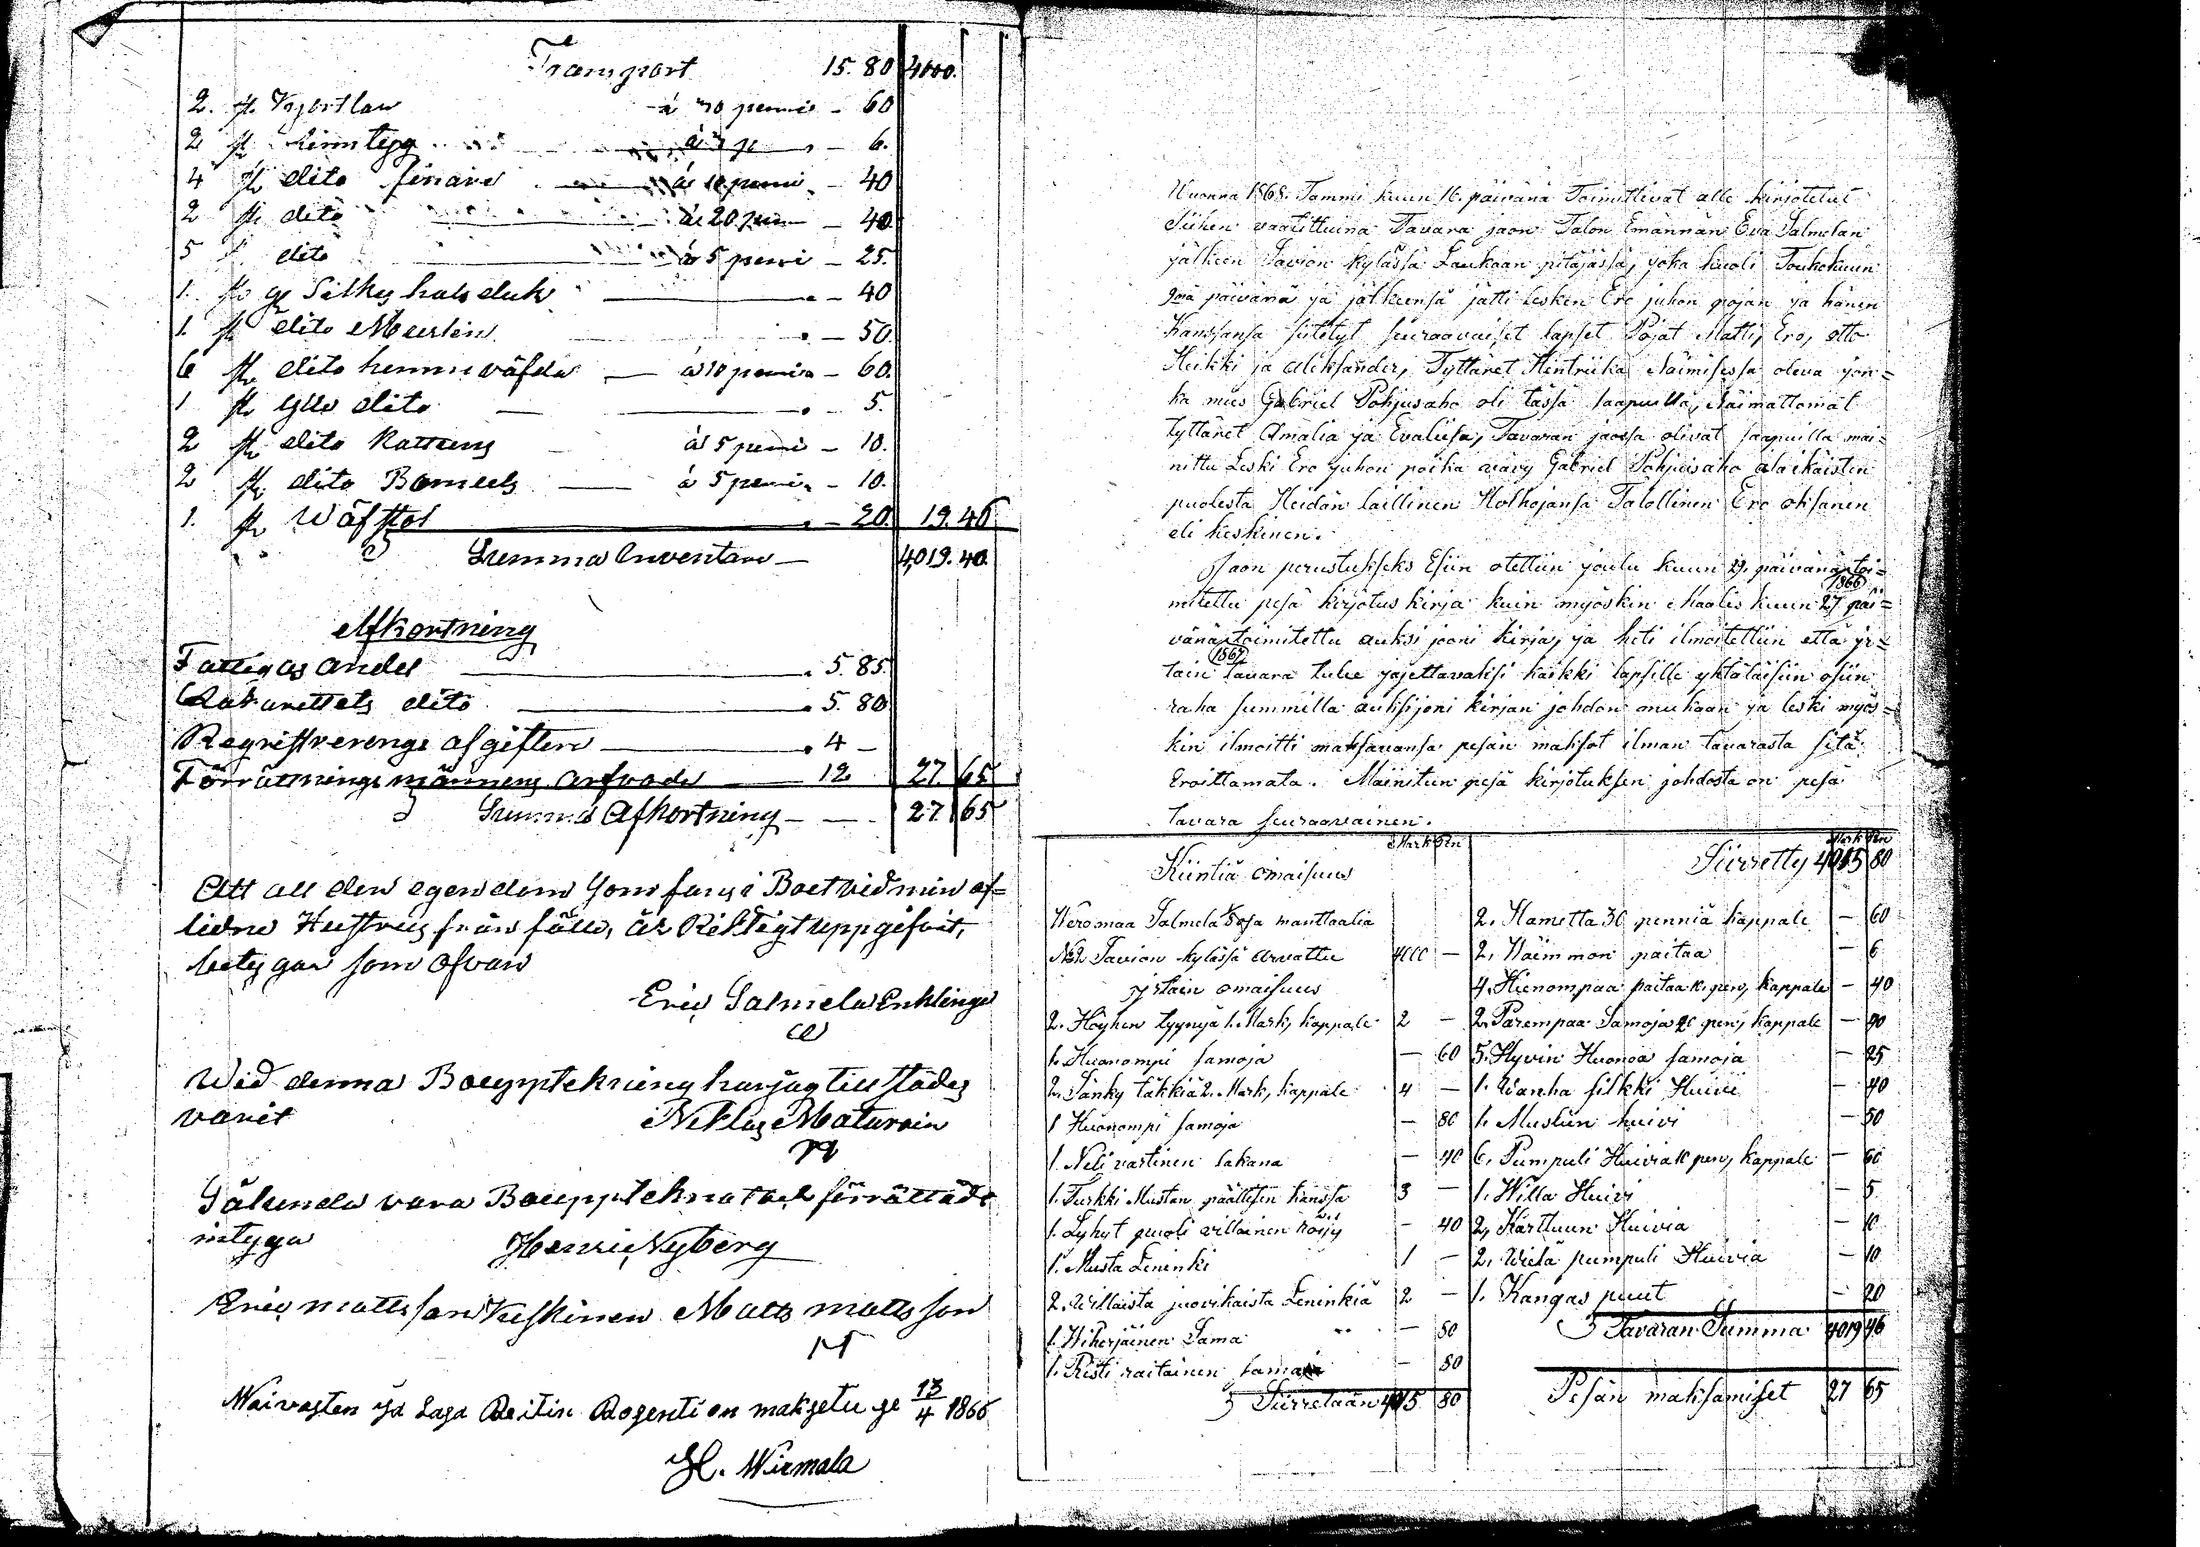 Transport 15. 80 4000.
2. st. Kjortlar à 30 penni — 60
2 st. à 3 p — 6.
4 st dito finare à 10 penni — 40
2 st. dito à 20 pen — 40
5 dito à 5 penni — 25.
1. st. Silkes halsduk — 40
1. st dito Muslin — 50.
6 st. dito hemmväfda — à 10 penni — 60.
1 st. Ylle dito — 5.
2 st. dito Kattuns à 5 penni — 10.
2 st. dito Bomuls — à 5 penni — 10.
1. st. Wäfstol — 20. 19. 46
Summa Inventari — 4,019. 46.
Afkortning
Fattigas andel 5. 85.
dito 5. 80
afgiften 4 —
Förrättnings männens arfvode 12 27. 65
Summa Afkortning — 27 65
Att all den egendom som fans i Boet vid min af=
lidna Hustrus frånfälle, är Riktigt uppgifvit,
betygar som ofvan
Eric Salmela Enklinge
Wid denna Bouppteckning har jag tillstädes
varit Niklas Maturain
Sålunda vara Boupptecknat och förrättadt
intyga Henric Nyberg
Eric mattsson Keskinen Matts mattsson
Waivasten ja on maksetu se 13/4 1866
H. Wirmala
Wuonna 1868. Tammi kuun 16. päivänä Toimittivat alle kirjotetut
Siihen vaadittuina Tavara jaon Talon Emännän Eva Salmelan
jälkeen Savion kylässä Laukaan pitäjässä, joka kuoli Toukokuun
päivänä ja jälkeensä jätti lesken Ero juhon pojan ja hänen
Kanssansa siitetyt seuraavaiset lapset Pojat Matti, Ero, otto
Heikki ja Aleksander, Tyttäret Hentriika Naimisessa oleva jon=
ka mies Gabriel Pohjusaho oli tässä saapuilla, Naimattomat
tyttäret Amalia ja Evaliisa, Tavaran jaossa olivat saapuilla mai=
nittu Leski Ero juhon poika vävy Gabriel Pohjusaho alaikäisten
puolesta Heidän laillinen Holhojansa Talollinen Ero oksanen
eli keskinen.
Jaon perustukseks Esiin otettiin joulu kuun 29. päivänä toi=
1866
mitettu pesä kirjotus kirja kuin myöskin Maalis kuun 27 päi=
vänä toimitettu auksi jooni kirja, ja heti ilmoitettiin että ir=
1867
tain tavara tulee jajettavaksi kaikki lapsille yhtäläisiin osiin
raha summilla auksijoni kirjan johdon mukaan ja leski myös=
kin ilmoitti maksavansa pesän maksot ilman tavarasta sitä
Eroittamata. Mainitun pesä kirjotuksen johdosta on pesä
tavara seuraavainen.
Mark Pen
Kiintiä omaisuus
Weromaa Salmela mantlaalia
No 2 Savion kylässä arvattu 4000 —
irtain omaisuus
2. Höyhen tyynyä 1. Mark, kappale 2 —
1. Huonompi samoja — 60
2. Sänky täkkiä 2. Mark, kappale 4 —
1 Huonompi samoja — 80
1. Neli vartinen lakana — 40
1. Turkki Mustan päällisen kanssa 3 —
1. Lyhyt puoli villainen röijy — 40
1. Musta Leninki 1 —
2. Willaista juovikaista Leninkiä 2 —
1. Wiherjäinen Sama — 80
1. Risti raitainen sama — 80
Siirretään 4015 80
Mark Pen
Siirretty 4015 80
2. Hametta 30 penniä kappale — 60
2. Waimmon paitaa — 6
4. Hienompaa paitaa 10 pen, kappale — 40
2. Parempaa Samoja 20 pen, kappale — 40
5. Hyvin Huonoa samoja — 25
1. Wanha silkki Huivi — 40
1. Musliin huivi — 50
6. Pumpuli Huivia 10 pen, kappale — 60
1. Willa Huivi — 5
2, Karttuun Huivia — 10
2. Wielä pumpuli Huivia — 10
1. Kangas puut — 20
Tavaran Summa 4019 46
Pesän maksamiset 27 65